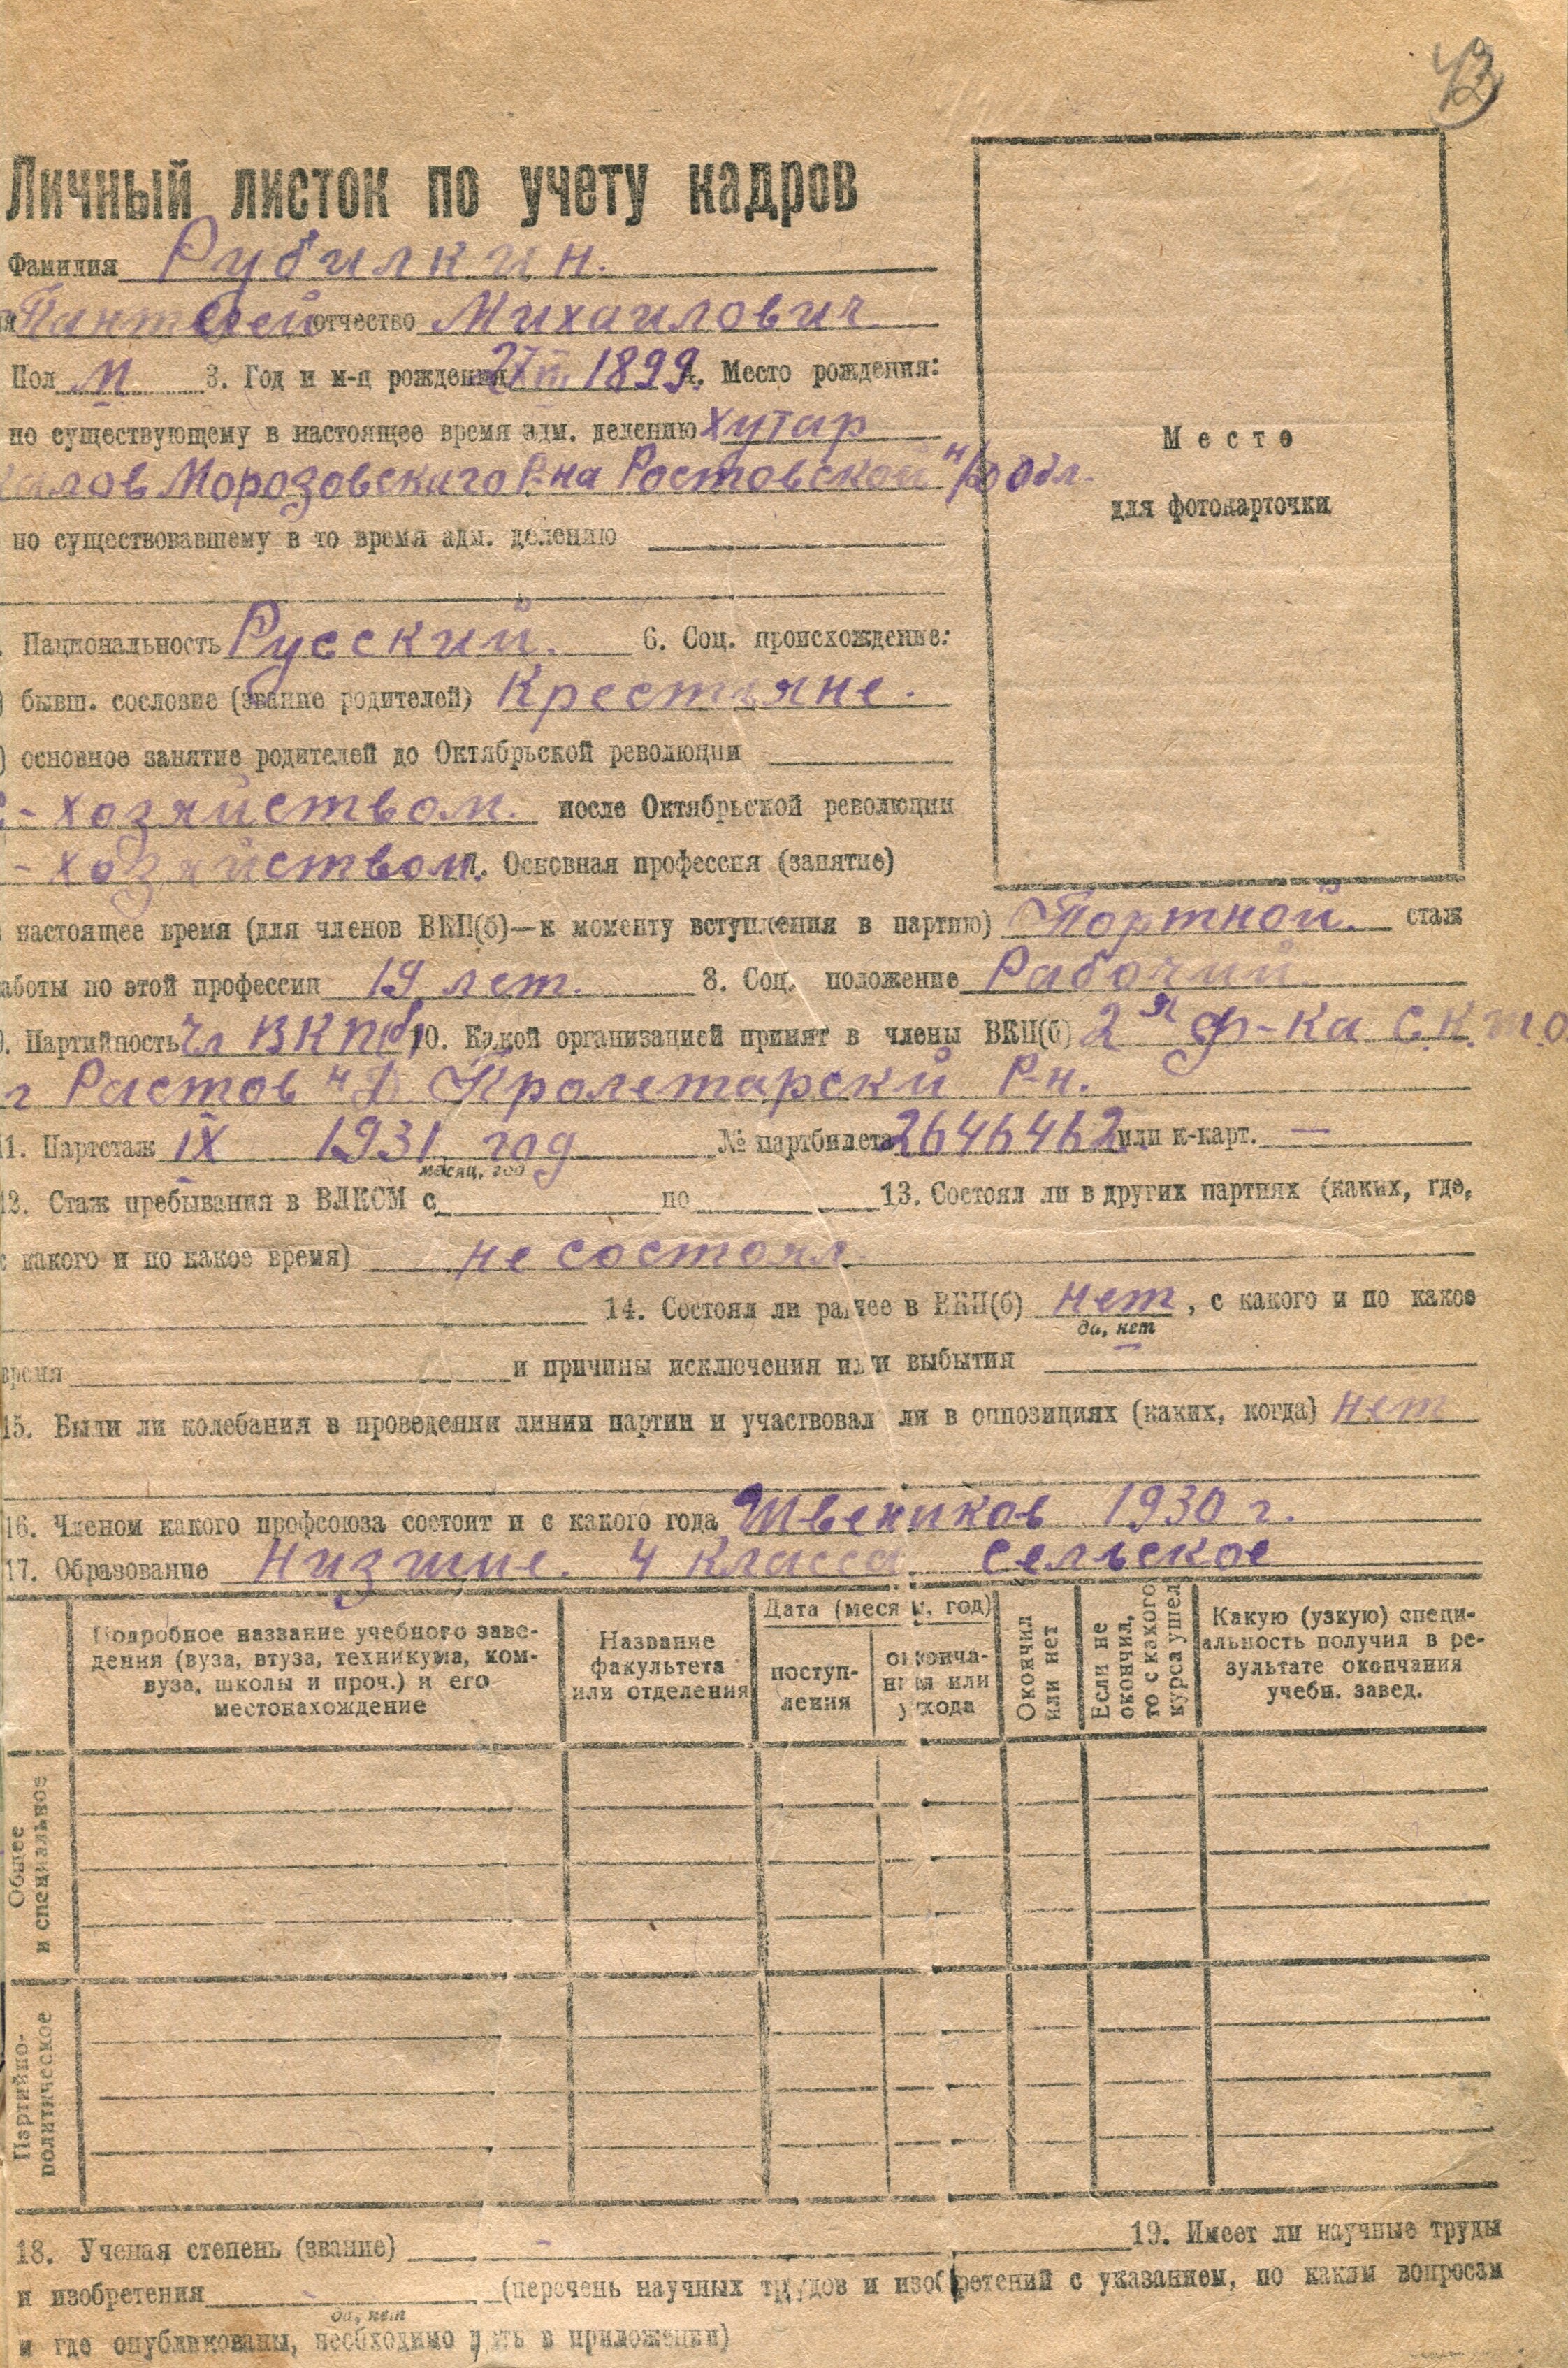 43
Личный листок по учету кадров
Фамилия Рубилкин.
отчество Михаилович
Пол М 3. Год и м-ц рождения 27 1899 4. Место рождения:
по существующему в настоящее время адм. делению хутар
Морозовскаго Р-на Ростовской н/Д обл.
Место
для фотокарточки
по существовавшему в то время адм. делению
. Национальность Русский. 6. Соц. происхождение:
) бывш. сословие (звание родителей) Крестьяне.
) основное занятие родителей до Октябрьской революции
с-хозяйством. после Октябрьской революции
-хозяйством. 7. Основная профессия (занятие)
настоящее время (для членов ВКП(б)—к моменту вступления в партию) Портной. стаж
аботы по этой профессии 19 лет. 8. Соц. положение Рабочий
9. Партийность чл ВКП(б) 10. Какой организацией принят в члены ВКП(б) 2я ф-ка С.К.Ш.О.
г Растов н Д Пролетарски Р-н.
11. Партстаж IX 1931 год № партбилета 2646462 или к-карт. —
месяц, год
12. Стаж пребывания в ВЛКСМ с по 13. Состоял ли в других партиях (каких, где,
с какого и по какое время) не состоял
14. Состоял ли ранее в ВКП(б) нет , с какого и по какое
да, нет
время и причины исключения или выбытия
15. Были ли колебания в проведении линии партии и участвовал ли в оппозициях (каких, когда) нет
16. Членом какого профсоюза состоит и с какого года Швеников 1930 г.
17. Образование Низшие. 4 класса сельское
Подробное название учебного заведения (вуза, втуза, техникума, комвуза, школы и проч.) и его местонахождение
Название факультета или отделения
Дата (месяц, год)
поступления
окончания или ухода
Окончил или нет
Если не окончил, то с какого курса ушел
Какую (узкую) специальность получил в результате окончания учебн. завед.
Общее и специальное
Партийно-политическое
18. Ученая степень (звание) 19. Имеет ли научные труды
и изобретения (перечень научных трудов и изобретений с указанием, по каким вопросам
да, нет
и где опубликованы, необходимо дать в приложении)